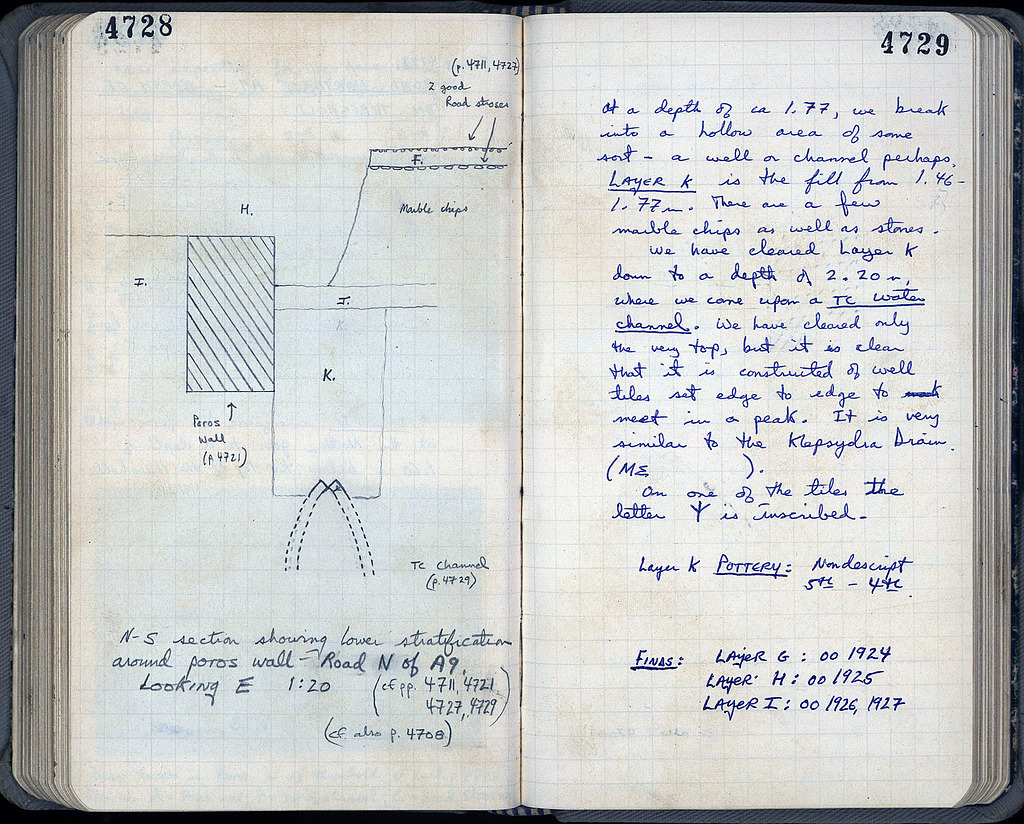 4728
(p. 4711, 4727)
2 good
Road stroses
F.
H.
Marble chips
I.
J.
K
K.
Poros
Wall
(p. 4721)
TC Channel
(p. 4729)
N-S section showing lower stratification
around poros wall - Road N of A9.
Looking E 1:20
(cf pp. 4711, 4721
4727, 4729)
(cf. also p. 4708)
4729
At a depth of ca 1.77, we break
into a hollow area of some
sort - a well or channel perhaps.
LAYER K is the fill from 1.46-
1.77m. There are a few
marble chips as well as stones.
We have cleared Layer K
down to a depth of 2.20 m,
where we come upon a TC water
channel. We have cleared only
the very top, but it is clear
that it is constructed of well
tiles set edge to edge to
meet in a peak. It is very
similar to the Klepsydra Drain.
(ΜΣ ).
On one of the tiles the
letter Y is inscribed.
Layer K POTTERY: Nondescript
5th - 4th
FINDS: LAYER G: 00 1924
LAYER H: 00 1925
LAYER I: 00 1926, 1927